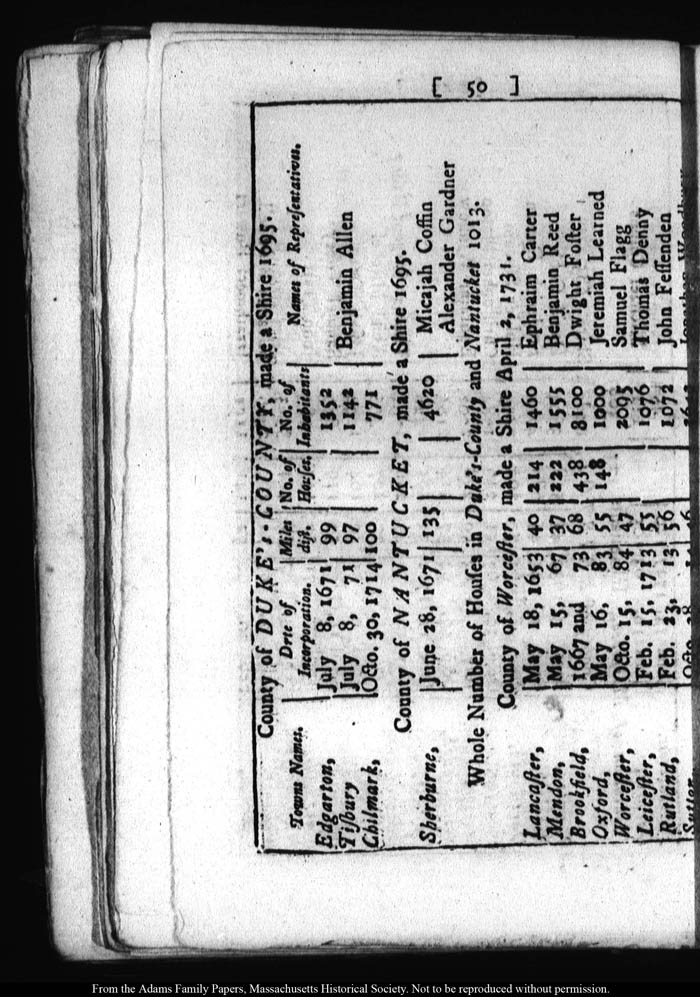 [ 50 ]
County of DUKE's-COUNTY, made a Shire 1695.
Towns Names. Drte of Incorporation. Miles dist. No. of Houses. No. of Inhabitants Names of Representatives.
Edgarton, July 8, 1671 99 1352
Tisbury July 8, 71 97 1142 Benjamin Allen
Chilmark, Octo. 30, 1714 100 771
County of NANTUCKET, made a Shire 1695.
Sherburne, June 28, 1671 135 4620 Micajah Coffin
Alexander Gardner
Whole Number of Houses in Duke's-County and Nantucket 1013.
County of Worcester, made a Shire April 2, 1731.
Lancaster, May 18, 1653 40 214 1460 Ephraim Carter
Mendon, May 15, 67 37 222 1555 Benjamin Reed
Brookfield, 1667 and 73 68 438 8100 Dwight Foster
Oxford, May 16, 83 55 148 1000 Jeremiah Learned
Worcester, Octo. 15, 84 47 2095 Samuel Flagg
Leicester, Feb. 15, 1713 55 1076 Thomas Denny
Rutland, Feb. 23, 13 56 1072 John Fessenden
From the Adams Family Papers, Massachusetts Historical Society. Not to be reproduced without permission.